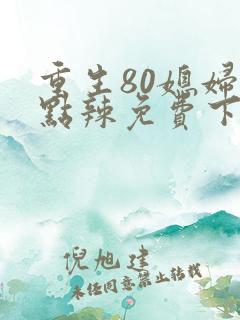 重生80媳婦
點辣免費下
倪旭建
未经同意禁止转载